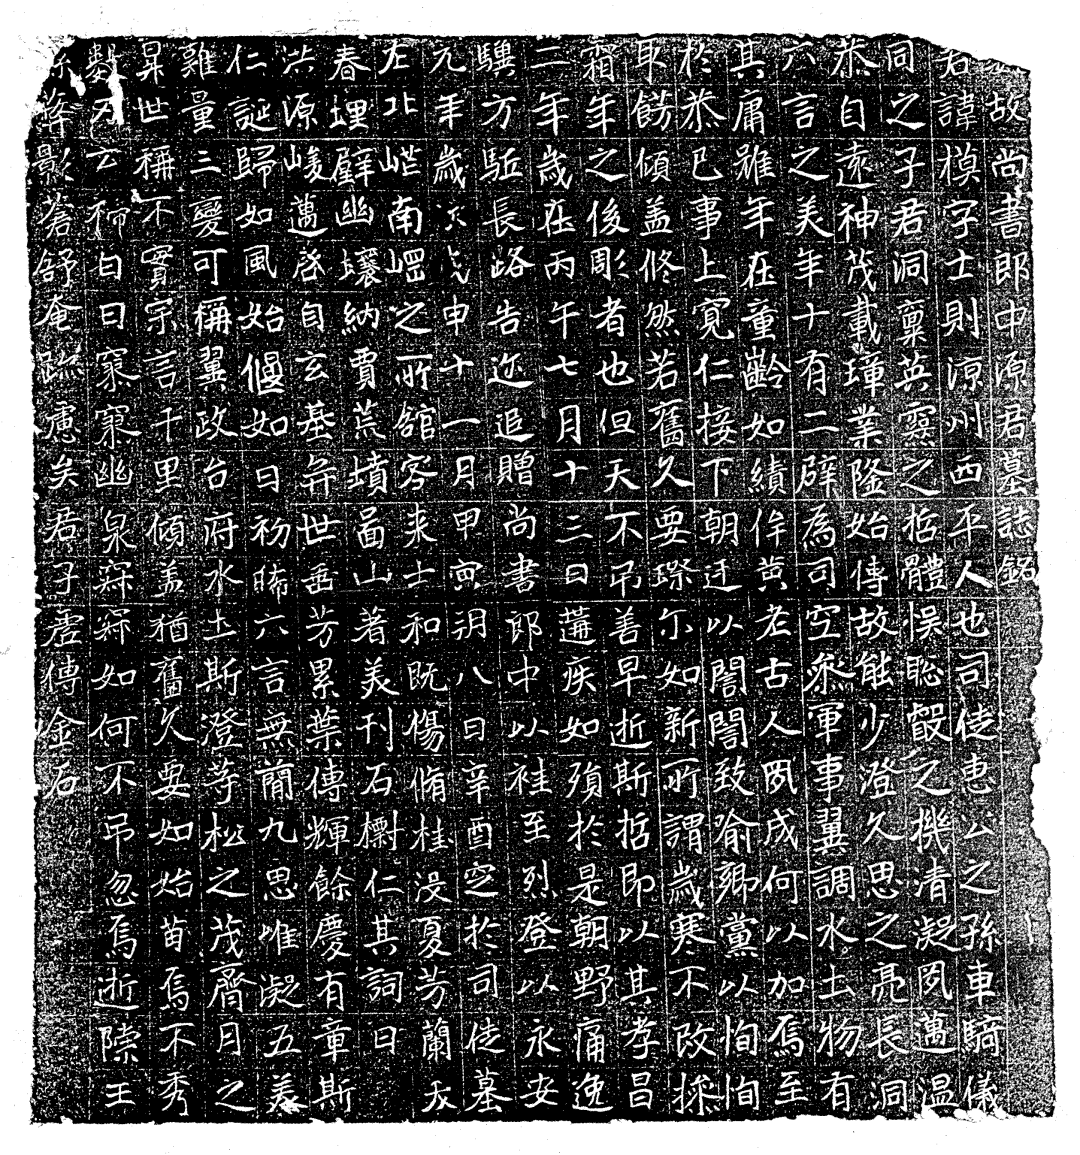 故尚書郎中源君墓誌銘
君諱模字士則涼州西平人也司徒惠公之孫車騎儀
同之子君洞稟英靈之哲體悞聡叡之機清凝夙邁温
恭自遠神茂載璋業隆始傅故能少澄久思之亮長洞
六言之美年十有二辟為司空參軍事翼調水土物有
其庸雖年在童齡如績侔黃老古人夙成何以加焉至
於恭己事上寬仁接下朝廷以誾誾致喻鄉黨以恂恂
取餝傾盖修然若舊久要琛尓如新所謂歲寒不改採
霜年之後彫者也但天不弔善早逝斯哲即以其孝昌
二年歲在丙午七月十三日遘疾如殞於是朝野痛逸
驥方駈長路告迩追贈尚書郎中以袿至烈登以永安
元年歲次戊申十一月甲寅朔八日辛酉窆於司徒墓
左北南之所舘容来士和既傷脩桂沒夏芳蘭夭
春埋璧幽壤納賈荒墳啚山著美刊石樹仁其詞曰
洪源峻邁啓自玄基弈世垂芳累葉傳輝餘慶有章斯
仁誕歸如風始偃如日初晞六言無簡九思唯凝五美
難量三變可稱翼政台府水土斯澄等松之茂齊月之
昇世稱不實宗言千里傾盖猶舊久要如始苗焉不秀
云稀白日寥寥幽泉寐寐如何不弔忽焉逝隙王
孫影蒼舒奄跡慮矣君子虛傳金石